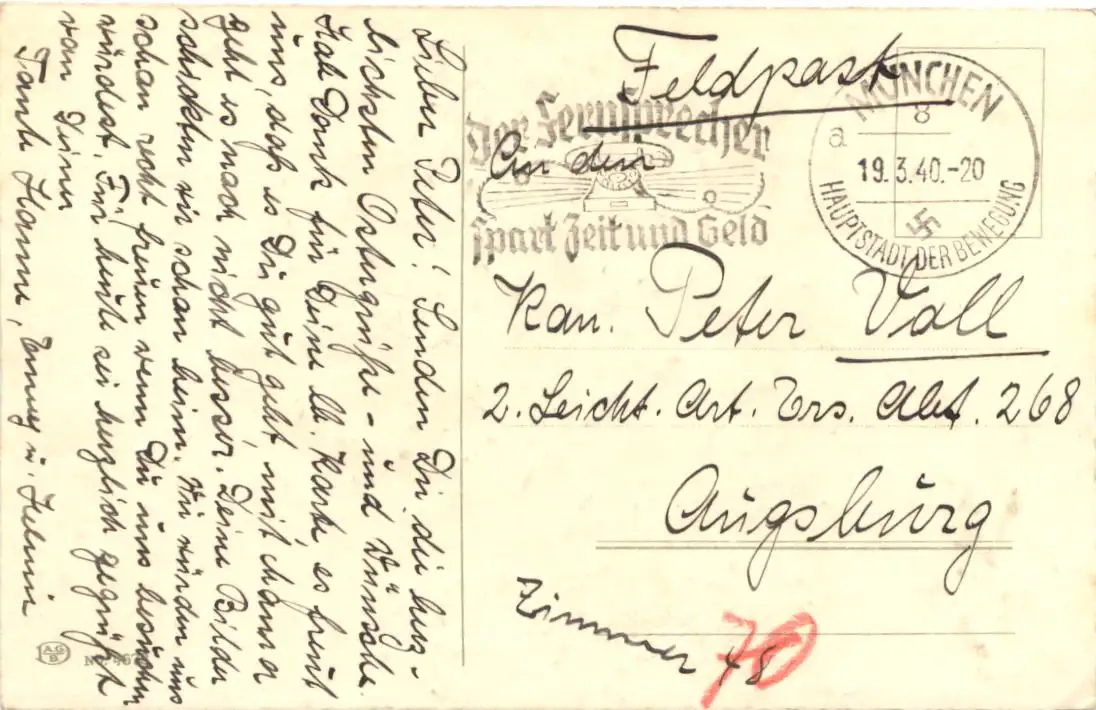 Lieber Peter! Senden Dir die herz-
lichsten Ostergrüße - und Wünsche.
Hab Dank für Deine lb. Karte es freut
uns, daß es Dir gut geht, mit
geht es noch nicht besser. Deine Bilder
schickten wir schon heim. Wir würden uns
schon recht freuen wenn Du uns besuchen
würdest. Für heute sei herzlich gegrüßt
von Deiner
Tante Hanne, Emmy u. Helmi
AGB
No.
Feldpost
An den
Kan. Peter Voll
2. Leicht. Art. Ers. Abt. 268
Augsburg
Zimmer 48
70
Der Fernsprecher
spart Zeit und Geld
MÜNCHEN
8
a
19.3.40.-20
HAUPTSTADT DER BEWEGUNG